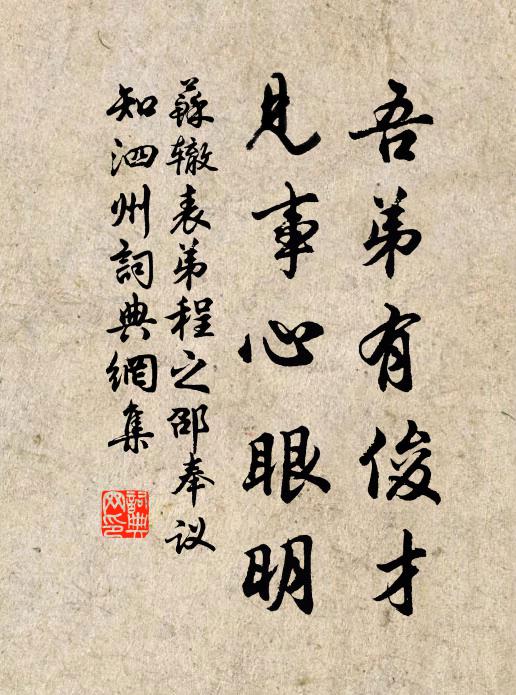 吾弟有俊才
見事心眼明
蘇辙表弟程之邵奉议
知泗州詞典網集
詞典网印